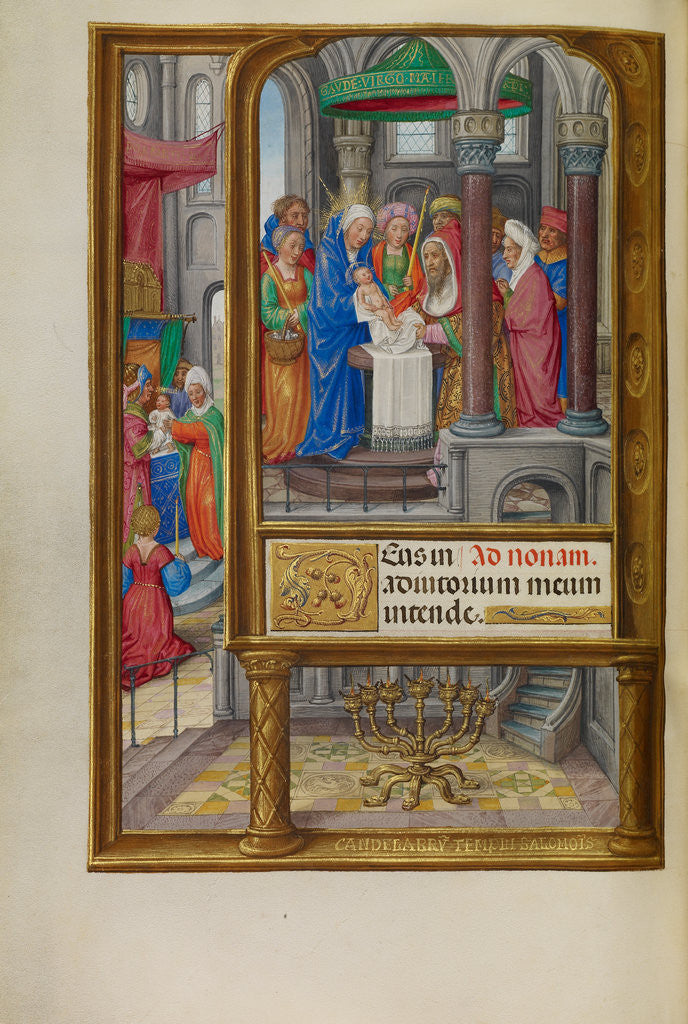 GAVDE·VIRGO·MATER
Eus in Ad nonam.
adiutorium meum
intende.
CANDELABRV̄ TEMPLI SALOMOIS